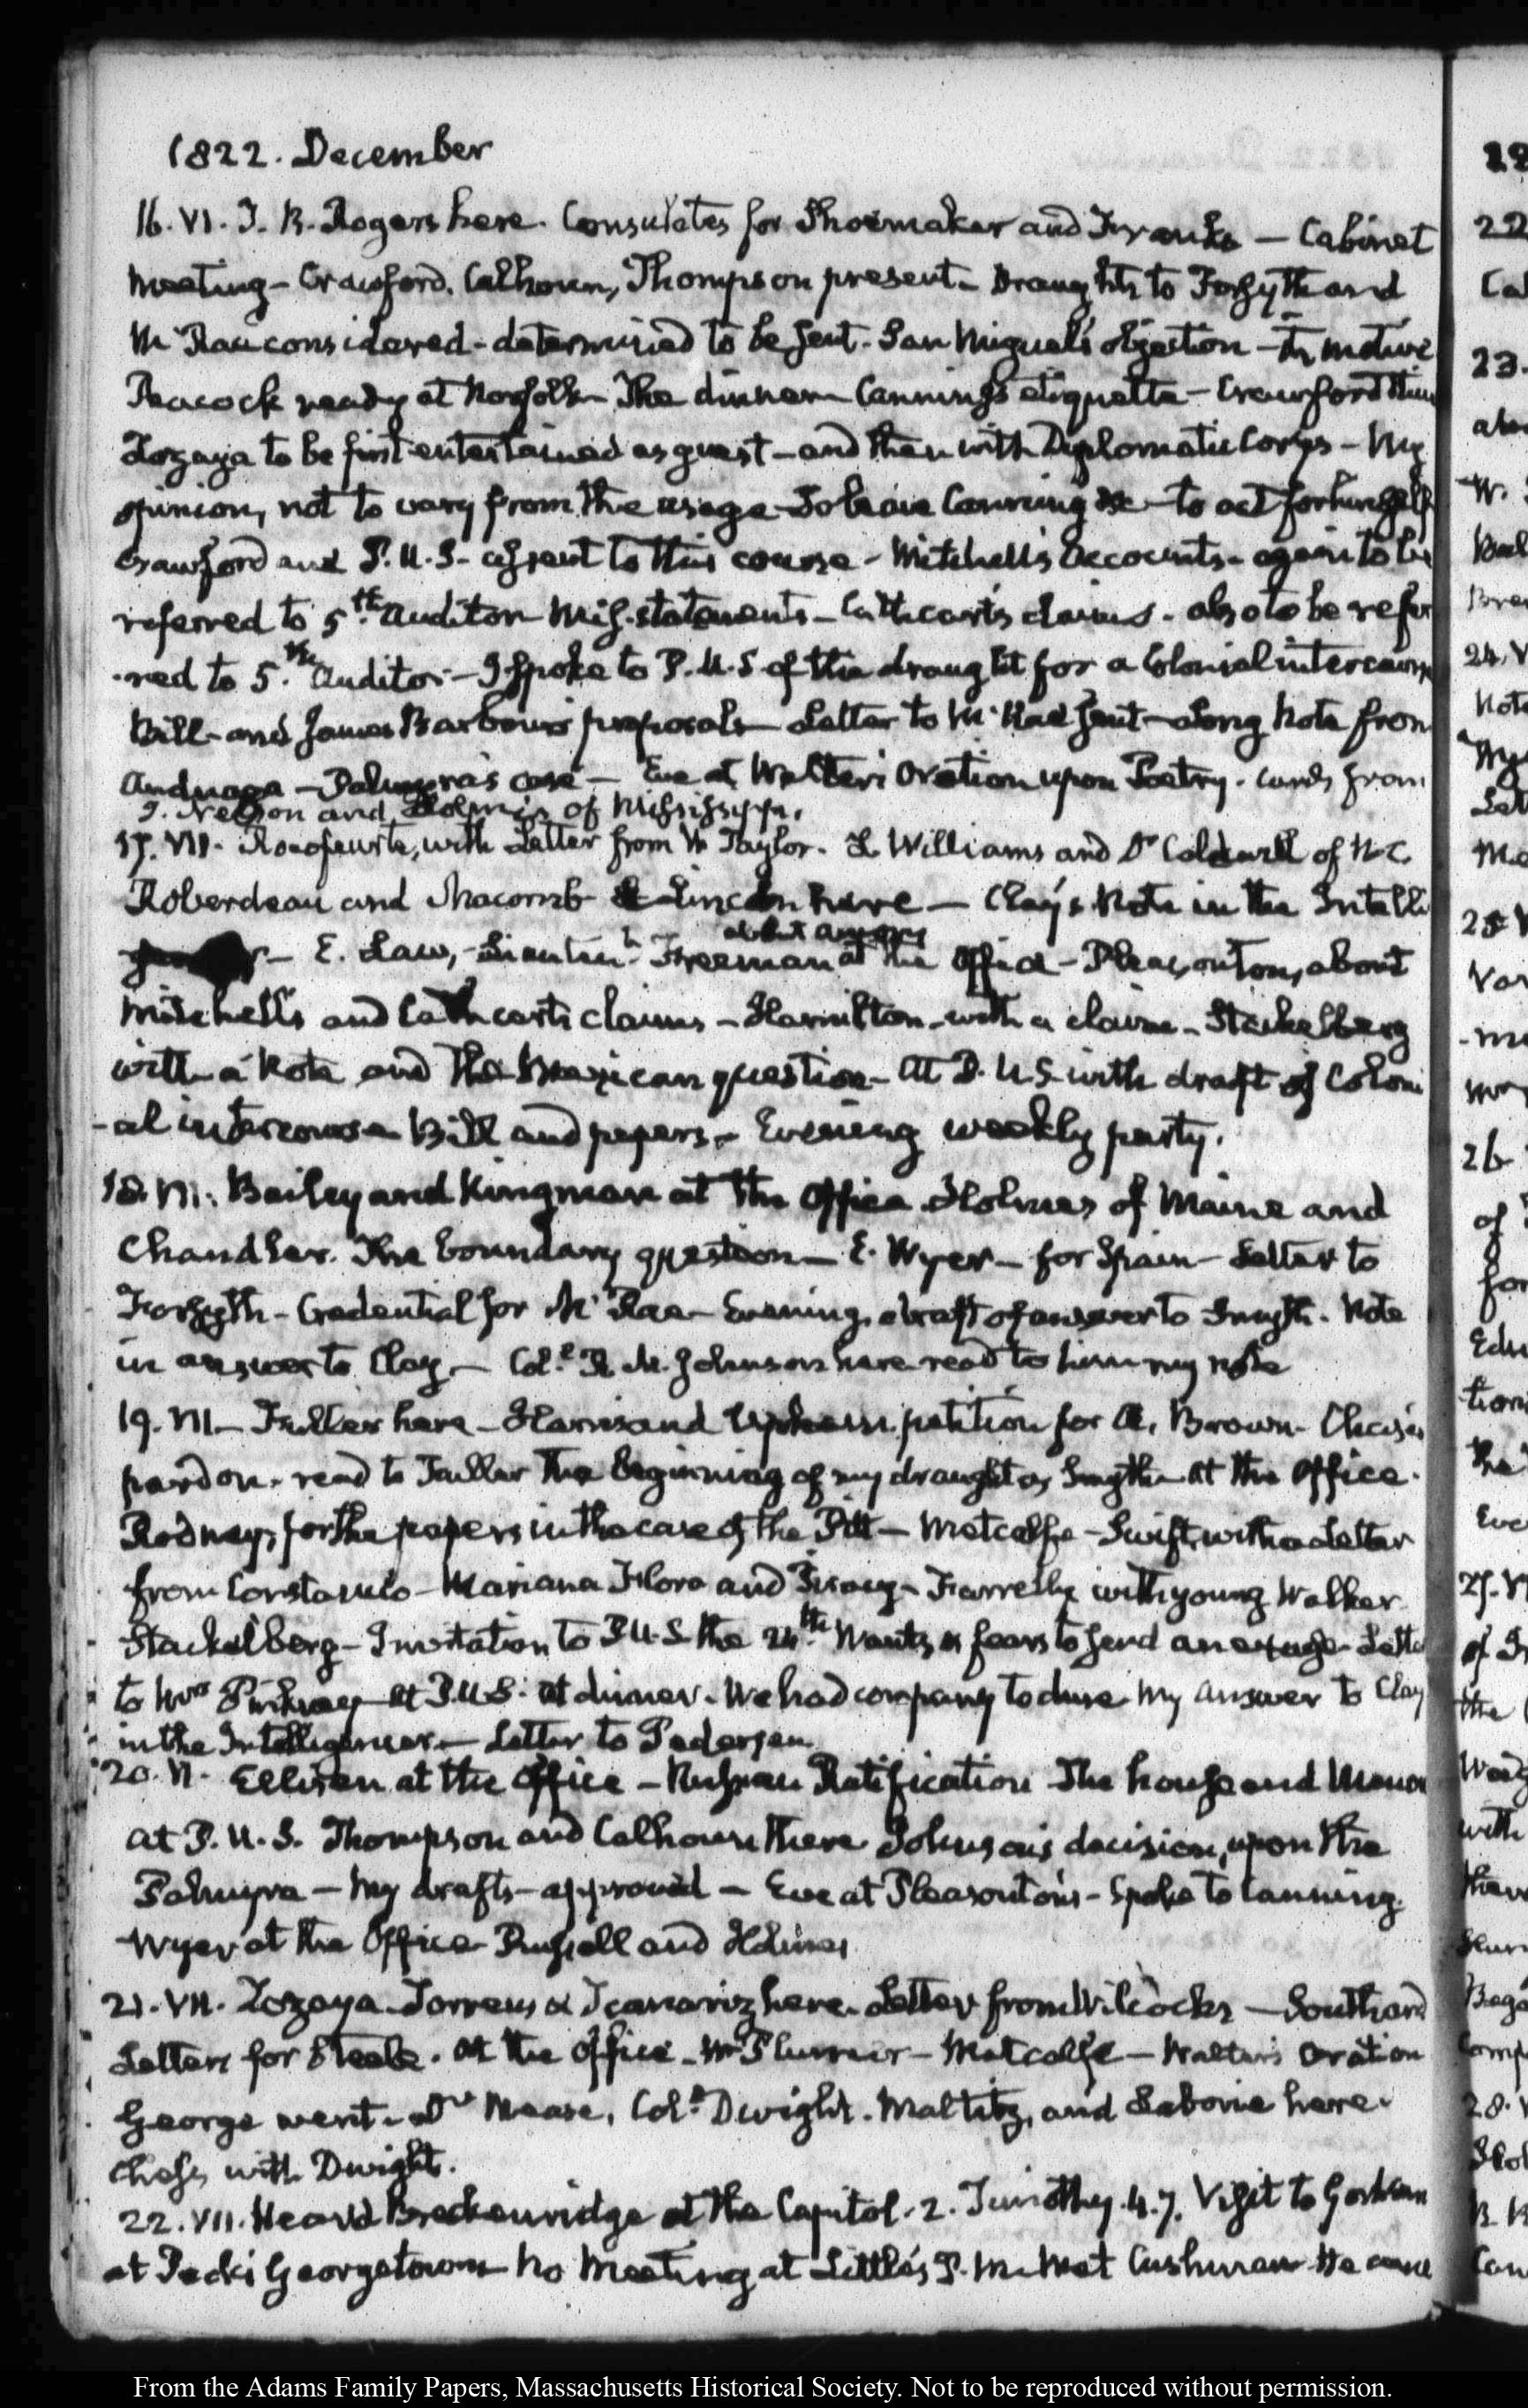 1822. December
16. VI. J. R. Rogers here. Consulates for Shoemaker and — Cabinet
Meeting - Crawford. Calhoun, Thompson present - Draughts to Forsyth and
McRae considered - determined to be sent - San Miguel's objection - motive
Peacock ready at Norfolk - The dinner Canning's etiquette - Crawford
Zozaya to be first entertained as guest - and then with Diplomatic Corps - My
opinion, not to vary from the usage - to leave Canning &c - to act for himself
Crawford and P.U.S. assent to this course - Mitchell's Accounts - again to be
referred to 5th. Auditor Mis-statements - Cathcart's claims - also to be refer
-red to 5th. Auditor - I spoke to P.U.S of the draught for a Colonial intercourse
Bill - and James Barbour's proposals - Letter to McRae sent - along Note from
Anduaga - Palmyra's case - Eve at Walter's Oration upon Poetry. cards from
J. Nelson and Holmes of Mississippi.
17. VII. with Letter from W Taylor. L Williams and Dr Caldwell of N.C.
Roberdeau and Macomb Lincoln here — Clay's Note in the Intelli
- E. Law, - Lieutent. Freeman at the Office - Pleasonton, about
Mitchell's and Cathcart's claims - Hamilton - with a claim - Stackelberg
with a Note and the Mexican question - At P.U.S with draft of Coloni
-al intercourse Bill and papers - Evening weekly party.
18. VI. Bailey and Kingman at the Office Holmes of Maine and
Chandler. The boundary question - E. Wyer - for Spain - Letter to
Forsyth - Credential for McRae - Evening, draft of answer to Smyth. Note
in answer to Clay - Col. R. M. Johnson here read to him my note
19. VII - Fuller here - Harris and petition for A. Brown -
pardon - read to Fuller the beginning of my draught Smyth - At the Office.
Rodney, for the papers in the case of the Pitt - Metcalfe - Swift, with a Letter
from - Mariana Flora and - Farrelly with young Walker
Stackelberg - Invitation to P.U.S. the 24th. Wants fears to send Letter
to Mrs Pinkney - At P.U.S. at dinner. We had company to dine My answer to Clay
in the Intelligencer - Letter to Pedersen
20. VI. Ellisen at the Office - Russian Ratification The house and
At P.U.S. Thompson and Calhoun there Johnson's decision, upon the
Palmyra - My drafts - approved - Eve at Pleasonton's - Spoke to Canning.
Wyer at the Office Russell and Holmes
21. VII. Zozaya Torrens & here - Letter from Wilcocks - Southard
Letters for Steele. At the Office - Mr Plumer - Metcalfe - Walter's Oration
George went - Dr Mease, Coll. Dwight. Maltitz, and Laborie here.
Chess with Dwight.
22. VII. Heard Breckenridge at the Capitol. 2. Timothy. 4.7. Visit to
at Peck's Georgetown No Meeting at Little's P.M. Met Cushman He came
From the Adams Family Papers, Massachusetts Historical Society. Not to be reproduced without permission.